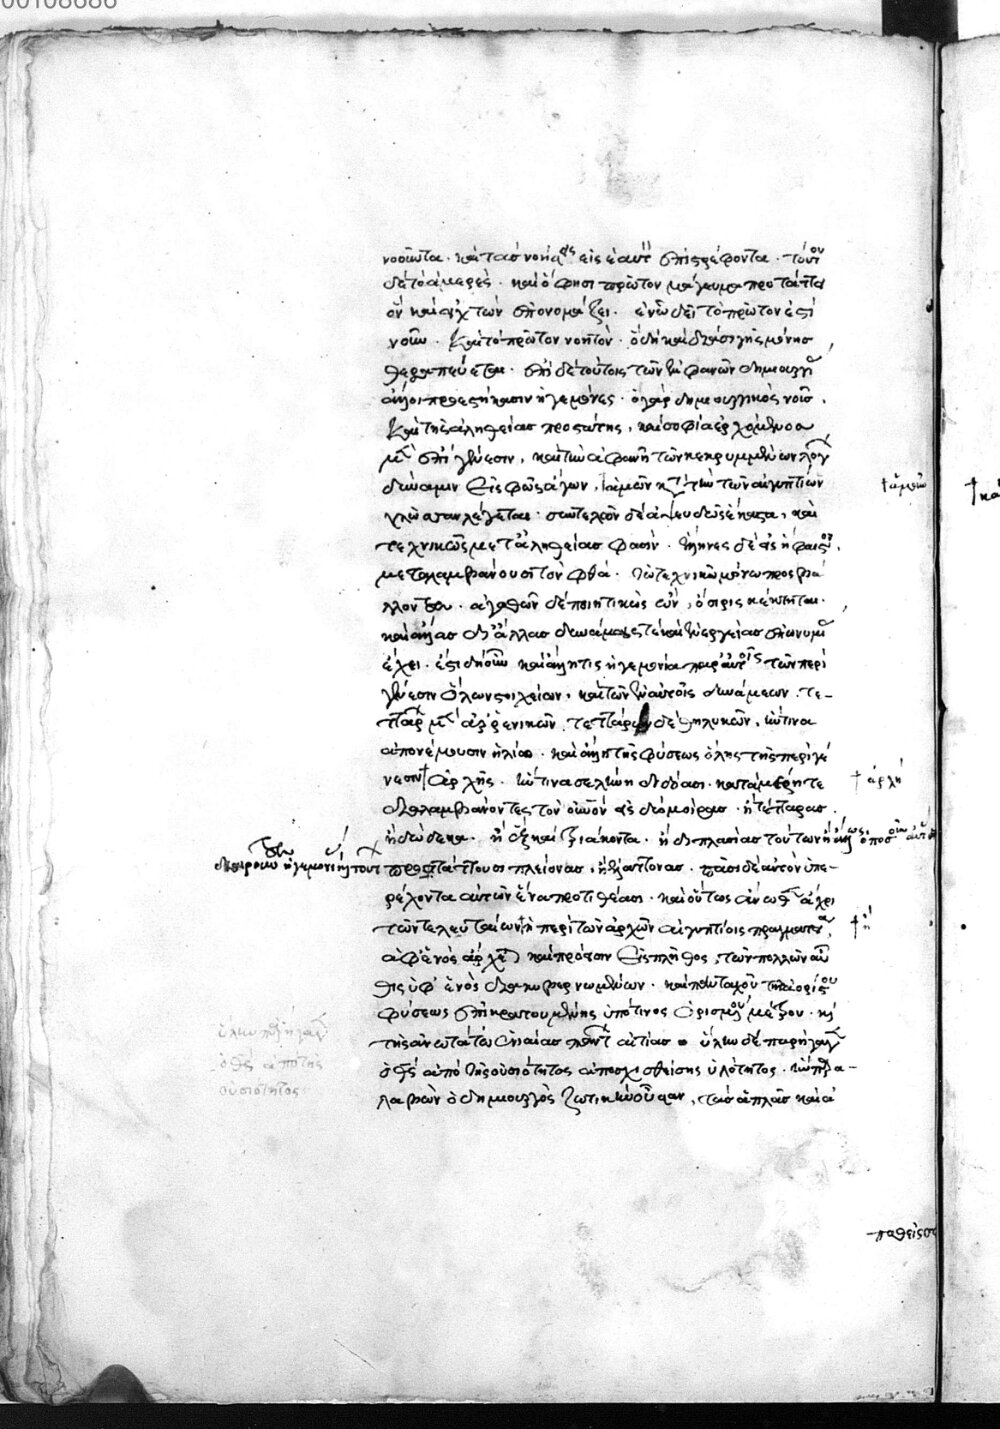 00108686
νοοῦντα. καὶ τὰς νοήσεις εἰς ἑαυτὸν ἐπιστρέφοντα. τούτου
δὲ τὸ ἀμερὲς. καὶ ὅ φησι πρῶτον μάγευμα προτάττει
ὃν καὶ εἰχτὼν ἐπονομάζει. ἐν ᾧ δεῖ τὸ πρῶτον ἐστὶ
νοοῦν. καὶ τὸ πρῶτον νοητόν. ὃ δὴ καὶ διὰ σιγῆς μόνης
θεραπεύεται. ἐπὶ δὲ τούτοις τῶν ἐμφανῶν δημιουργίας
ἄλλοι προεστήκασιν ἡγεμόνες. ὁ γὰρ δημιουργικὸς νοῦς.
καὶ τῆς ἀληθείας προστάτης, καὶ σοφία ἐρχόμενος
μὲν ἐπὶ γένεσιν, καὶ τὴν ἀφανῆ τῶν κεκρυμμένων λόγων
δύναμιν εἰς φῶς ἄγων, ἀμῶν κατὰ τὴν τῶν αἰγυπτίων
γλῶσσαν λέγεται. συντελῶν δὲ ἀψευδῶς ἕκαστα, καὶ
τεχνικῶς μετ' ἀληθείας φθὰ. ἕλληνες δὲ εἰς ἥφαιστον
μεταλαμβάνουσι τὸν φθά. τῷ τεχνικῷ μόνῳ προσβάλ
λοντες. ἀγαθῶν δὲ ποιητικὸς ὢν, ὄσιρις κέκληται.
καὶ ἄλλας δι' ἄλλας δυνάμεις τε καὶ ἐνεργείας ἐπωνυμίας
ἔχει. ἔστι δὴ οὖν καὶ ἄλλη τις ἡγεμονία παρ' αὐτοῖς τῶν περὶ
γένεσιν ὅλων στοιχείων. καὶ τῶν ἐν αὐτοῖς δυνάμεων. τε-
τάρων μὲν ἀρρενικῶν, τεττάρων δὲ θηλυκῶν, ἥντινα
ἀπονέμουσιν ἡλίῳ. καὶ ἄλλη τῆς φύσεως ὅλης τῆς περὶ γέ
νεσιν † ἀρχῆς. ἥντινα σελήνῃ διδόασι. κατὰ μέρη τε
διαλαμβάνοντες τὸν οὐρανὸν εἰς δύο μοίρας. ἢ τέτταρας.
ἢ δώδεκα. ἢ ἓξ καὶ τριάκοντα. ἢ διπλασίας τούτων ἢ ἄλλως ὁποσοῦν αὐτὰς
προστάττουσι πλείονας, ἢ ἐλάττονας. πᾶσι δὲ αὖ τὸν ὑπε-
ρέχοντα αὐτῶν ἕνα προτιθέασι. καὶ οὕτως ἄνωθεν ἄχρι
τῶν τελευταίων † περὶ τῶν ἀρχῶν αἰγυπτίοις πραγματεία,
ἀφ' ἑνὸς ἄρχεται καὶ πρόεισιν εἰς πλῆθος, τῶν πολλῶν αὖ
θις ὑφ' ἑνὸς διακυβερνωμένων. καὶ πανταχοῦ τῆς ἀορίστου
φύσεως ἐπικρατουμένης ὑπό τινος ὡρισμένου μέτρου. καὶ
τῆς ἀνωτάτω ἑνιαίας πάντων αἰτίας. ὕλην δὲ παρήγαγεν
ὁ θεὸς ἀπὸ τῆς οὐσιότητος ἀποσχισθείσης ὑλότητος. ἣν παρα-
λαβὼν ὁ δημιουργὸς ζωτικὴν οὖσαν, τὰς ἁπλᾶς καὶ ἀ
† ἀμοῦν
† ἀρχή
† ἡ
ὕλην παρήγαγεν
ὁ θεὸς ἀπὸ τῆς
οὐσιότητος
παθεῖς σφ